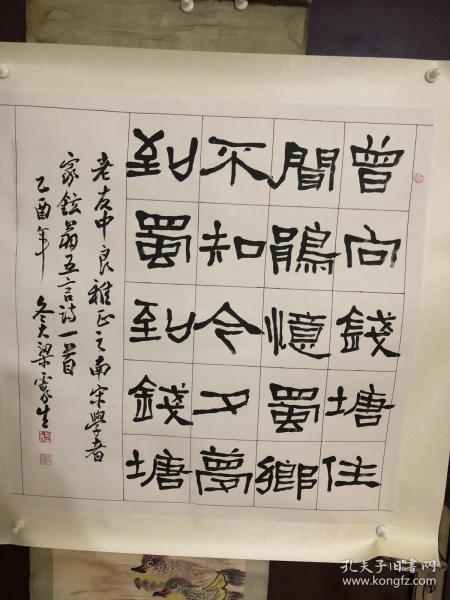 曾向錢塘住
聞鵑憶蜀鄉
不知今夕夢
到蜀到錢塘
老友中良雅正之南宋學者
家鉉翁五言诗一首
乙酉年冬天梁生
孔夫子旧书网
www.kongfz.com